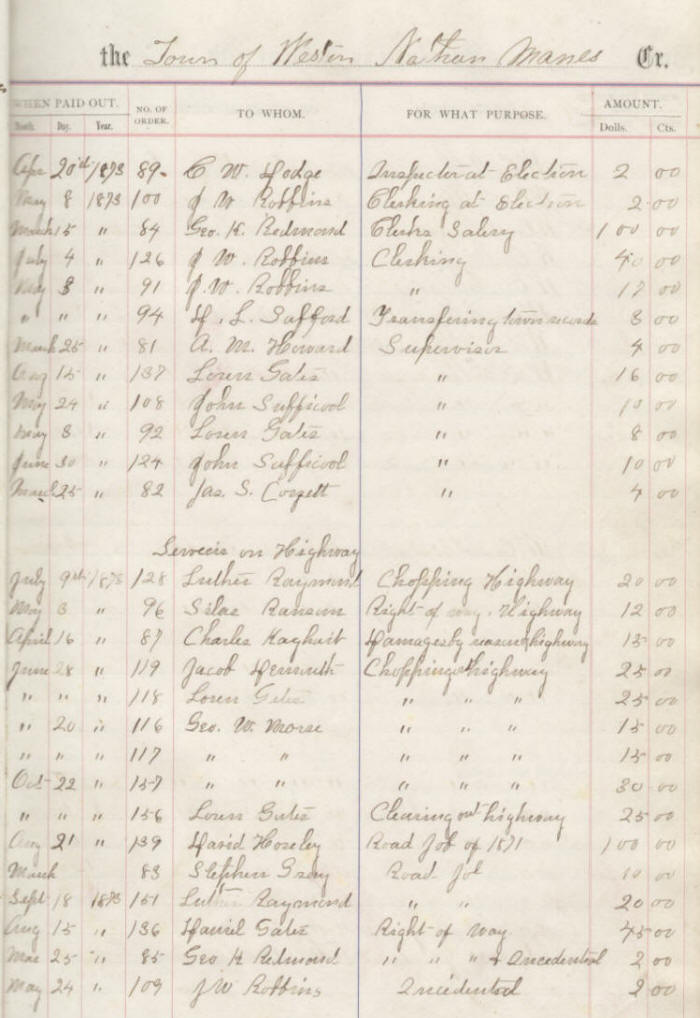 the Town of Weston Nathan Manes Cr.
WHEN PAID OUT. NO. OF ORDER. TO WHOM. FOR WHAT PURPOSE. AMOUNT.
Month. Day. Year. Dolls. Cts.
Apr 20d 1873 89 C W. Hodge Inspector at Election 2 00
May 8 1873 100 J W Robbins Clerking at Election 2 00
March 15 " 84 Geo. H. Redmond Clerks Salery 100 00
July 4 " 126 J W. Robbins Clerking 40 00
May 3 " 91 J. W. Robbins " 17 00
" " " 94 H. L. Safford Transfering town records 8 00
March 25 " 81 A. M. Howard Supervisor 4 00
Aug 15 " 137 Loren Gates " 16 00
May 24 " 108 John Sufficool " 10 00
May 3 " 92 Loren Gates " 8 00
June 30 " 124 John Sufficool " 10 00
March 25 " 82 Jas. S. " 4 00
Services on Highway
July 9th 1873 128 Luther Raymond Chopping Highway 20 00
May 3 " 96 Silas Ransom Right of way. Highway 12 00
April 16 " 87 Charles Damages by reason of highway 15 00
June 28 " 119 Jacob Chopping highway 25 00
" " " 118 Loren Gates " " " 25 00
" 20 " 116 Geo. W. Morse " " " 15 00
" " " 117 " " " " " 15 00
Oct 22 " 157 " " " " " 30 00
" " " 156 Loren Gates Clearing out highway 25 00
Aug 21 " 139 David Hozeley Road Job of 1871 100 00
March 83 Stephen Gray Road Job 10 00
Sept 18 1873 151 Luther Raymond " " 20 00
Aug 15 " 136 Daniel Gates Right of Way 45 00
Mar 25 " 85 Geo H Redmond " " " & Incedental 2 00
May 24 " 109 J W Robbins Incedental 2 00